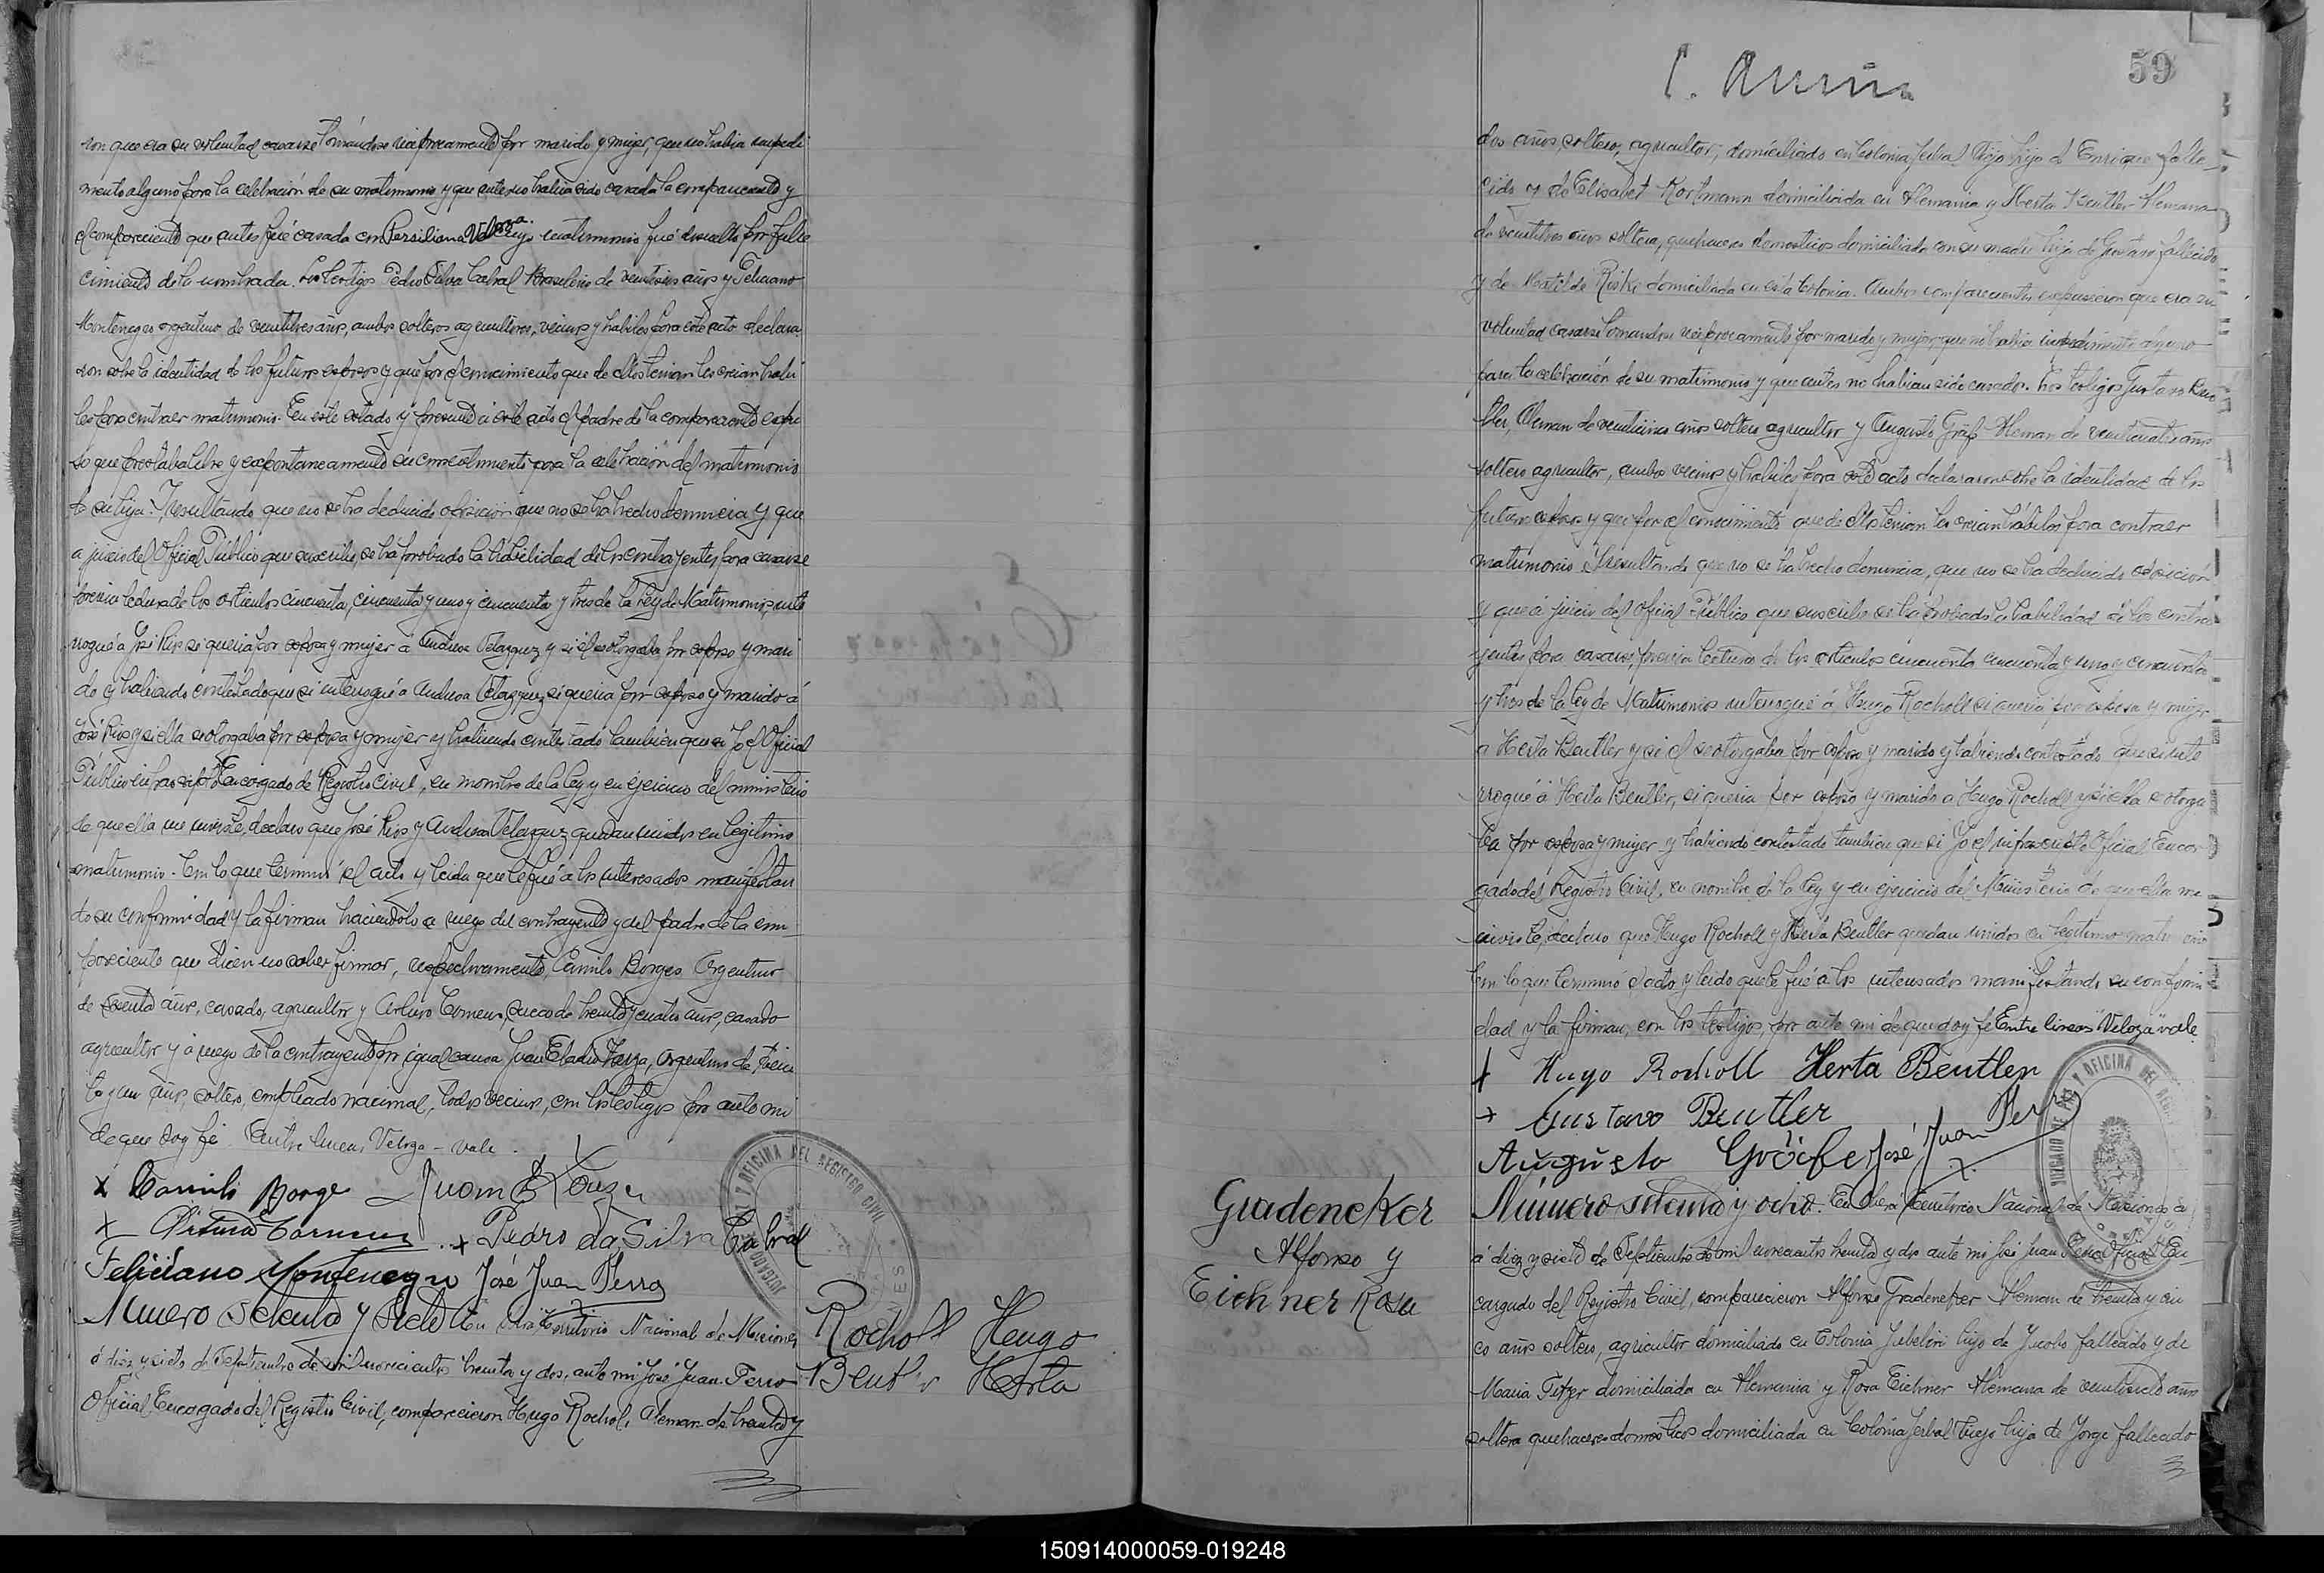 ron que era su voluntad casarse tomándose reciprocamente por marido y mujer, que no habia impedi
mento alguno para la celebración de su matrimonio y que antes no habia sido casada la compareciente y
el compareciente que antes fué casado con Persiliana Veloza cuyo matrimonio fué disuelto por falle
cimiento de la nombrada. Los testigos Pedro Silva Cabral Brasilero de veintiseis años y Feliciano
Montenegro argentino de veintitres años, ambos solteros agricultores, vecinos y habiles para este acto declara
ron sobre la identidad de los futuros esposos y que por el conocimiento que de ellos tenian les creian habi
les para contraer matrimonio. En este estado y presente á este acto el padre de la compareciente expu
so que prestaba libre y espontaneamente su consentimiento para la celebración del matrimonio
de su hija. Y, resultando que no se ha deducido oposición que no se ha hecho denuncia y que
a juicio del Oficial Público que suscribe, se há probado la habilidad de los contrayentes para casarse
previa lectura de los articulos cincuenta, cincuenta y uno y cincuenta y tres de la Ley de Matrimonio, inte
rrogué a José Rios si queria por esposa y mujer á Andresa Velazquez y si él se otorgaba por esposo y mari
do y habiendo contestado que si interrogué a Andresa Velazquez si queria por esposo y marido á
José Rios y si ella se otorgaba por esposa y mujer y habiendo contestado tambien que si Yo el Oficial
Público infrascripto Encargado de Registro Civil, en nombre de la Ley y en ejercicio del ministerio
de que ella me inviste, declaro que José Rios y Andresa Velazquez quedan unidos en legitimo
matrimonio. Con lo que terminó el acto y leida que le fué á los interesados manifestan
do su conformidad y la firman haciendolo a ruego del contrayente y del padre de la com
pareciente que dicen no saber firmar, respectivamente, Camilo Borges Argentino
de sesenta años, casado, agricultor y Arturo sueco de treinta y cuatro años, casado
agricultor y á ruego de la contrayente por igual causa Juan Argentino de trein
ta y un años, soltero, empleado nacional, todos vecinos, con los testigos por ante mi
de que doy fé. Entre lineas Veloza - vale.
x Camilo Borge Juan
x Arturo x Pedro da Silva Cabral
Feliciano Montenegro José Juan Perro
Rochol Hugo
Beutler Herta
Número setenta y siete. En Territorio Nacional de Misiones
á diez y siete de Septiembre de mil novecientos treinta y dos, ante mi José Juan Perro
Oficial Encargado del Registro Civil, comparecieron Hugo Rochol, Aleman de treinta y
59
dos años, soltero, agricultor, domiciliado en Colonia Yerbal Viejo hijo de Enrique falle
cido y de Elisabet Kortmann domiciliada en Alemania y Herta Beutler Alemana
de veintitres años soltera, quehaceres domesticos domiciliada con su madre hija de Gustavo fallecido
y de Matilde Riske domiciliada en esta Colonia. Ambos comparecientes expusieron que era su
voluntad casarse tomandose reciprocamente por marido y mujer, que no habia impedimento alguno
para la celebración de su matrimonio y que antes no habian sido casados. Los testigos Gustavo Beu
tler, Aleman de veinticinco años soltero agricultor y Augusto Gräfe Aleman de veinticuatro años
soltero agricultor, ambos vecinos y habiles para este acto declararon sobre la identidad de los
futuros esposos y que por el conocimiento que de ellos tenian les creian hábiles para contraer
matrimonio. Y resultando que no se há hecho denuncia, que no se ha deducido oposición
y que á juicio del Oficial Público que suscribe se há probado la habilidad de los contra
yentes para casarse, previa lectura de los articulos cincuenta cincuenta y uno y cincuenta
y tres de la Ley de Matrimonio interrogué á Hugo Rocholl si queria por esposa y mujer
a Herta Beutler y si el se otorgaba por esposo y marido y habiendo contestado que si inte
rrogué á Herta Beutler, si queria por esposo y marido a Hugo Rocholl y si ella se otorga
ba por esposa y mujer y habiendo contestado tambien que si Yo el infrascripto Oficial Encar
gado del Registro Civil, en nombre de la Ley y en ejercicio del Ministerio de que ella me
inviste, declaro que Hugo Rocholl y Herta Beutler quedan unidos en legitimo matrimonio
Con lo que terminó el acto y leido que le fué a los interesados manifestando su conformi
dad y la firman, con los testigos, por ante mi de que doy fé Entre lineas "Veloza" vale.
x Hugo Rocholl Herta Beutler
x Gustavo Beutler
Augusto Gräfe José Juan Perro
Gradeneker
Alfonso y
Eichner Rosa
Número setenta y ocho. En Territorio Nacional de Misiones a
á diez y siete de Septiembre de mil novecientos treinta y dos ante mi José Juan Perro Oficial En
cargado del Registro Civil, comparecieron Alfonso Gradeneker Aleman de treinta y cin
co años soltero, agricultor domiciliado en Colonia hijo de Jacobo fallecido y de
Maria Fitzer domiciliada en Alemania y Rosa Eichner Alemana de veintisiete años
soltera quehaceres domesticos domiciliada en Colonia Yerbal Viejo hija de Jorge fallecido
150914000059-019248